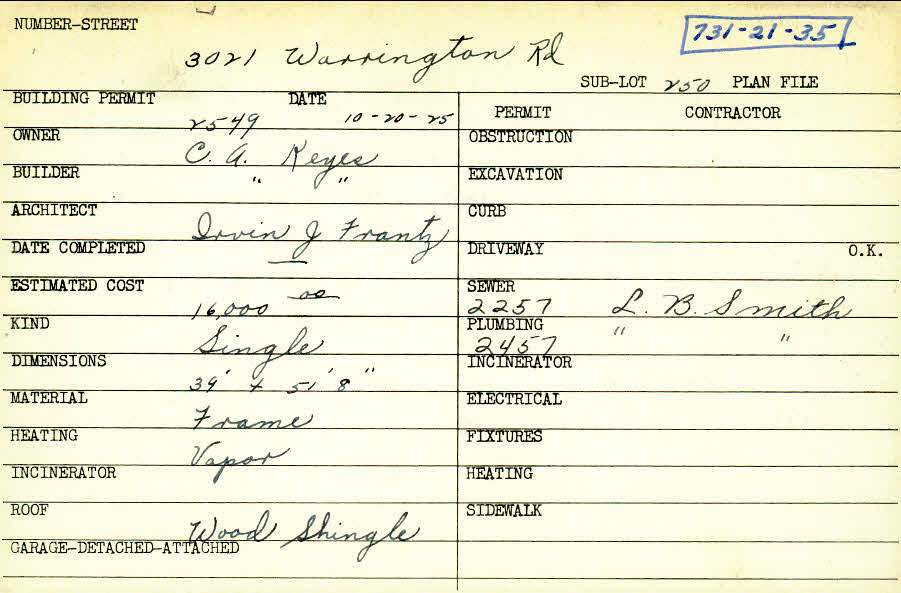 NUMBER-STREET
731-21-35
3021 Warrington Rd
SUB-LOT 250 PLAN FILE
BUILDING PERMIT DATE
2549 10-20-25
PERMIT CONTRACTOR
OWNER C. A. Keyes
BUILDER " "
ARCHITECT Irvin J Frantz
DATE COMPLETED —
ESTIMATED COST 16,000 00
KIND Single
DIMENSIONS 39' + 51' 8"
MATERIAL Frame
HEATING Vapor
INCINERATOR
ROOF Wood Shingle
GARAGE-DETACHED-ATTACHED
OBSTRUCTION
EXCAVATION
CURB
DRIVEWAY O.K.
SEWER
2257 L. B. Smith
PLUMBING " "
2457
INCINERATOR
ELECTRICAL
FIXTURES
HEATING
SIDEWALK